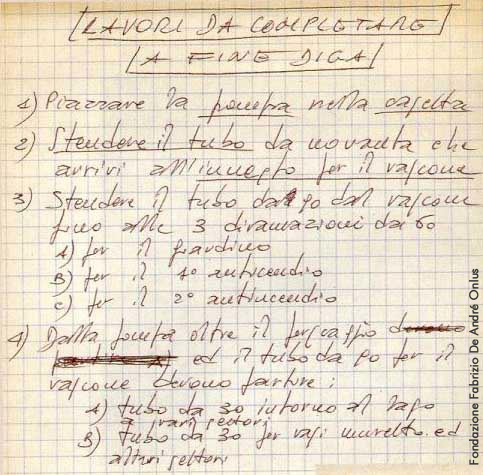 LAVORI DA COMPLETARE
A FINE DIGA
1) Piazzare la pompa nella casetta
2) Stendere il tubo da novanta che
arrivi all'innesto per il vascone
3) Stendere il tubo da 90 dal vascone
fino alle 3 diramazioni da 60
A) per il giardino
B) per il 1° antincendio
C) per il 2° antincendio
4) Dalla pompa oltre il
ed il tubo da 90 per il
vascone devono partire:
A) tubo da 30 intorno al lago
a vari settori
B) tubo da 30 per vasi muretto ed
altri settori
Fondazione Fabrizio De André Onlus